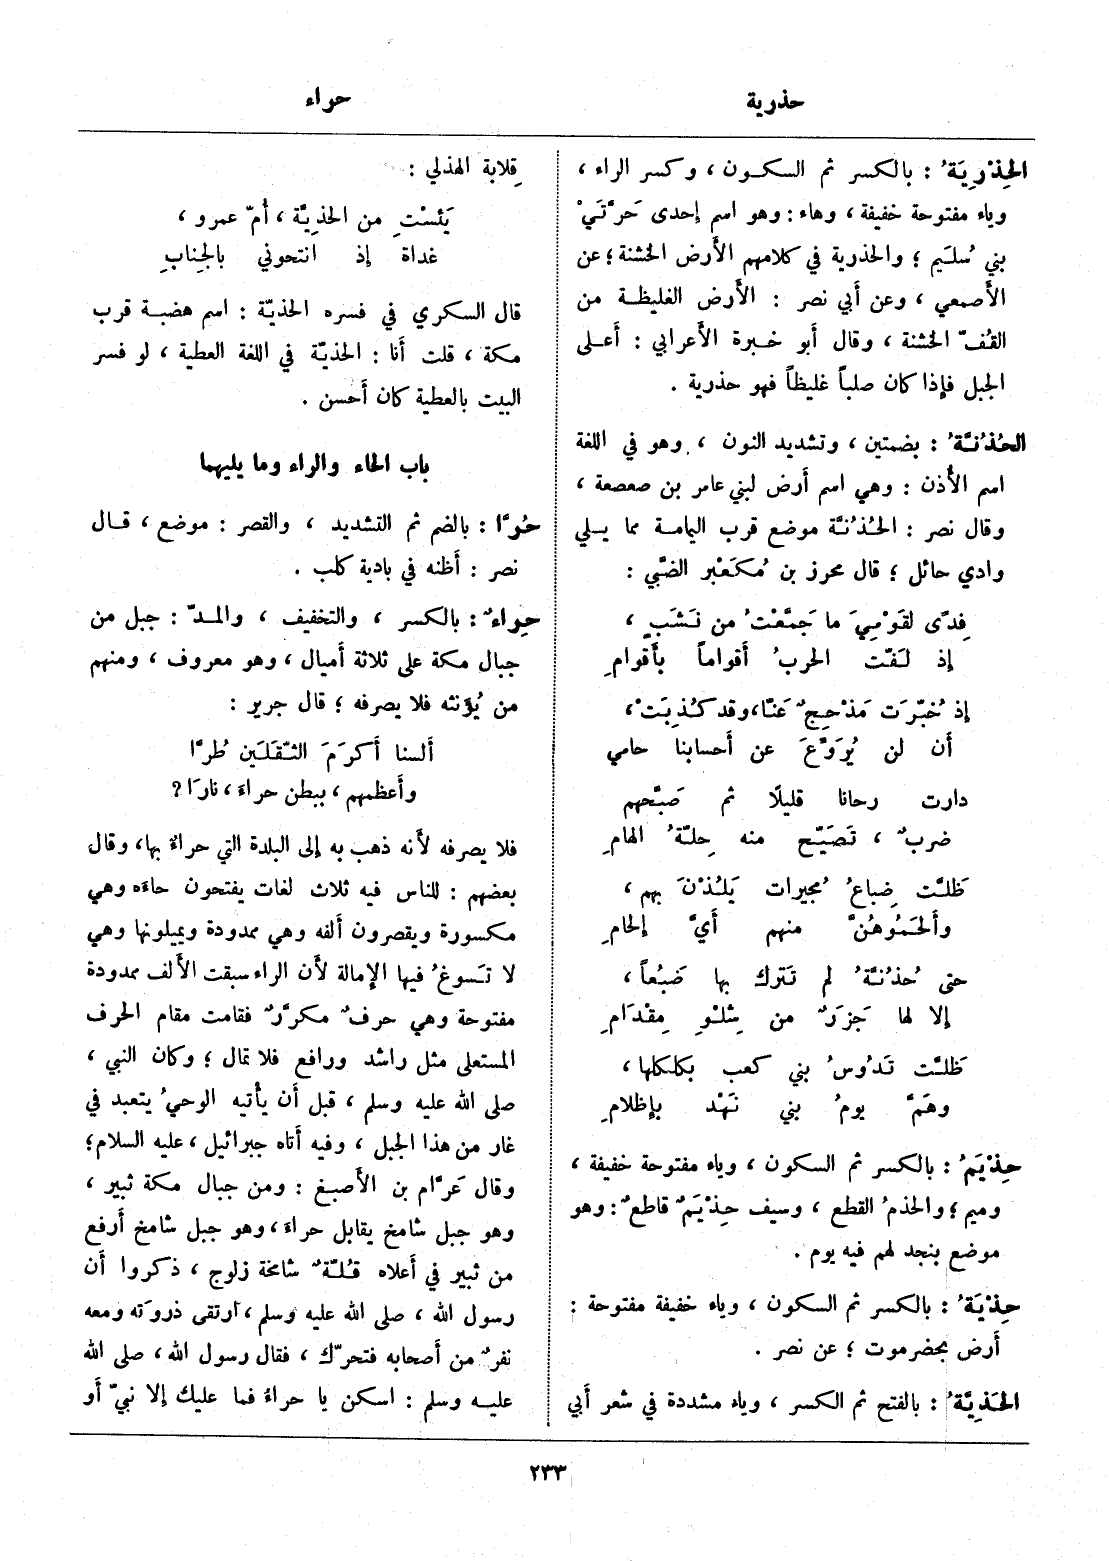 حذرية
حراء
الحِذْرِيَةُ : بالكسر ثم السكون ، وكسر الراء ،
وياء مفتوحة خفيفة ، وهاء : وهو اسم إحدى حَرَّتَيْ
بني سُلَيم ؛ والحذرية في كلامهم الأرض الخشنة ؛ عن
الأصمعي ، وعن أبي نصر : الأرض الغليظة من
القُفّ الخشنة ، وقال أبو خيرة الأعرابي : أعلى
الجبل فإذا كان صلباً غليظاً فهو حذرية .
الحُذُنَّةُ : بضمتين ، وتشديد النون ، وهو في اللغة
اسم الأُذن : وهي اسم أرض لبني عامر بن صعصعة ،
وقال نصر : الحُذُنَّة موضع قرب اليمامة مما يلي
وادي حائل ؛ قال محرز بن مُكَعْبر الضَّبّي :
فِدًى لقَوْمِيَ ما جَمَّعْتُ من نَشَبٍ ،
إذ لَفَّت الحربُ أقواماً بأقوامِ
إذ خُبّرَت مَذْحِجٌ عَنّا، وقد كُذِبَتْ ،
أن لن يُرَوَّعَ عن أحسابنا حامي
دارت رحانا قليلًا ثم صَبَّحهم
ضربٌ ، تَصَيّح منه حِلّةُ الهامِ
ظَلَّت ضِباعُ مُجيرات يَلُذْنَ بهم ،
وألحَمُوهُنَّ منهم أيَّ إلحامِ
حتى حُذُنَّةُ لم تَترك بها ضَبُعاً ،
إلا لها جَزَرٌ من شِلْوِ مِقْدَامِ
ظَلَّت تَدُوسُ بني كعب بكلكلها ،
وهَمَّ يومُ بني نَهْد بإظلامِ
حِذْيَمُ : بالكسر ثم السكون ، وياء مفتوحة خفيفة ،
وميم ؛ والحذمُ القطع ، وسيف حِذْيَمٌ قاطعٌ : وهو
موضع بنجد لهم فيه يوم .
حِذْيَةُ : بالكسر ثم السكون ، وياء خفيفة مفتوحة :
أرض بحضرموت ؛ عن نصر .
الحَذِيَّةُ : بالفتح ثم الكسر ، وياء مشددة في شعر أبي
قِلابة الهذلي :
يَئسْتِ من الحذِيَّة ، أُمّ عمرو ،
غداة إذ انتحوني بالجنابِ
قال السكري في فسره الحذيّة : اسم هضبة قرب
مكة ، قلت أنا : الحذيّة في اللغة العطية ، لو فسر
البيت بالعطية كان أحسن .
باب الحاء والراء وما يليهما
حُرَّا : بالضم ثم التشديد ، والقصر : موضع ، قال
نصر : أظنه في بادية كلب .
حِراءٌ : بالكسر ، والتخفيف ، والمدّ : جبل من
جبال مكة على ثلاثة أميال ، وهو معروف ، ومنهم
من يُؤنثه فلا يصرفه ؛ قال جرير :
ألسنا أكرَمَ الثّقَلَين طُرًّا
وأعظمهم ، ببطن حراءَ ، نارَا ؟
فلا يصرفه لأنه ذهب به إلى البلدة التي حراءُ بها، وقال
بعضهم : للناس فيه ثلاث لغات يفتحون حاءه وهي
مكسورة ويقصرون ألفه وهي ممدودة ويميلونها وهي
لا تَسوغُ فيها الإمالة لأن الراء سبقت الألف ممدودة
مفتوحة وهي حرفٌ مكرَّرٌ فقامت مقام الحرف
المستعلي مثل راشد ورافع فلا تمال ؛ وكان النبي ،
صلى الله عليه وسلم ، قبل أن يأتيه الوحيُ يتعبد في
غار من هذا الجبل ، وفيه أتاه جبرائيل ، عليه السلام ؛
وقال عَرَّام بن الأصبغ : ومن جبال مكة ثبير ،
وهو جبل شامخ يقابل حراءَ، وهو جبل شامخ أرفع
من ثبير في أعلاه قُلّةٌ شامخة زلوج ، ذكروا أن
رسول الله ، صلى الله عليه وسلم ، ارتقى ذروَته ومعه
نفرٌ من أصحابه فتحرّك ، فقال رسول الله ، صلى الله
عليه وسلم : اسكن يا حراءُ فما عليك إلا نبيّ أو
٢٣٣